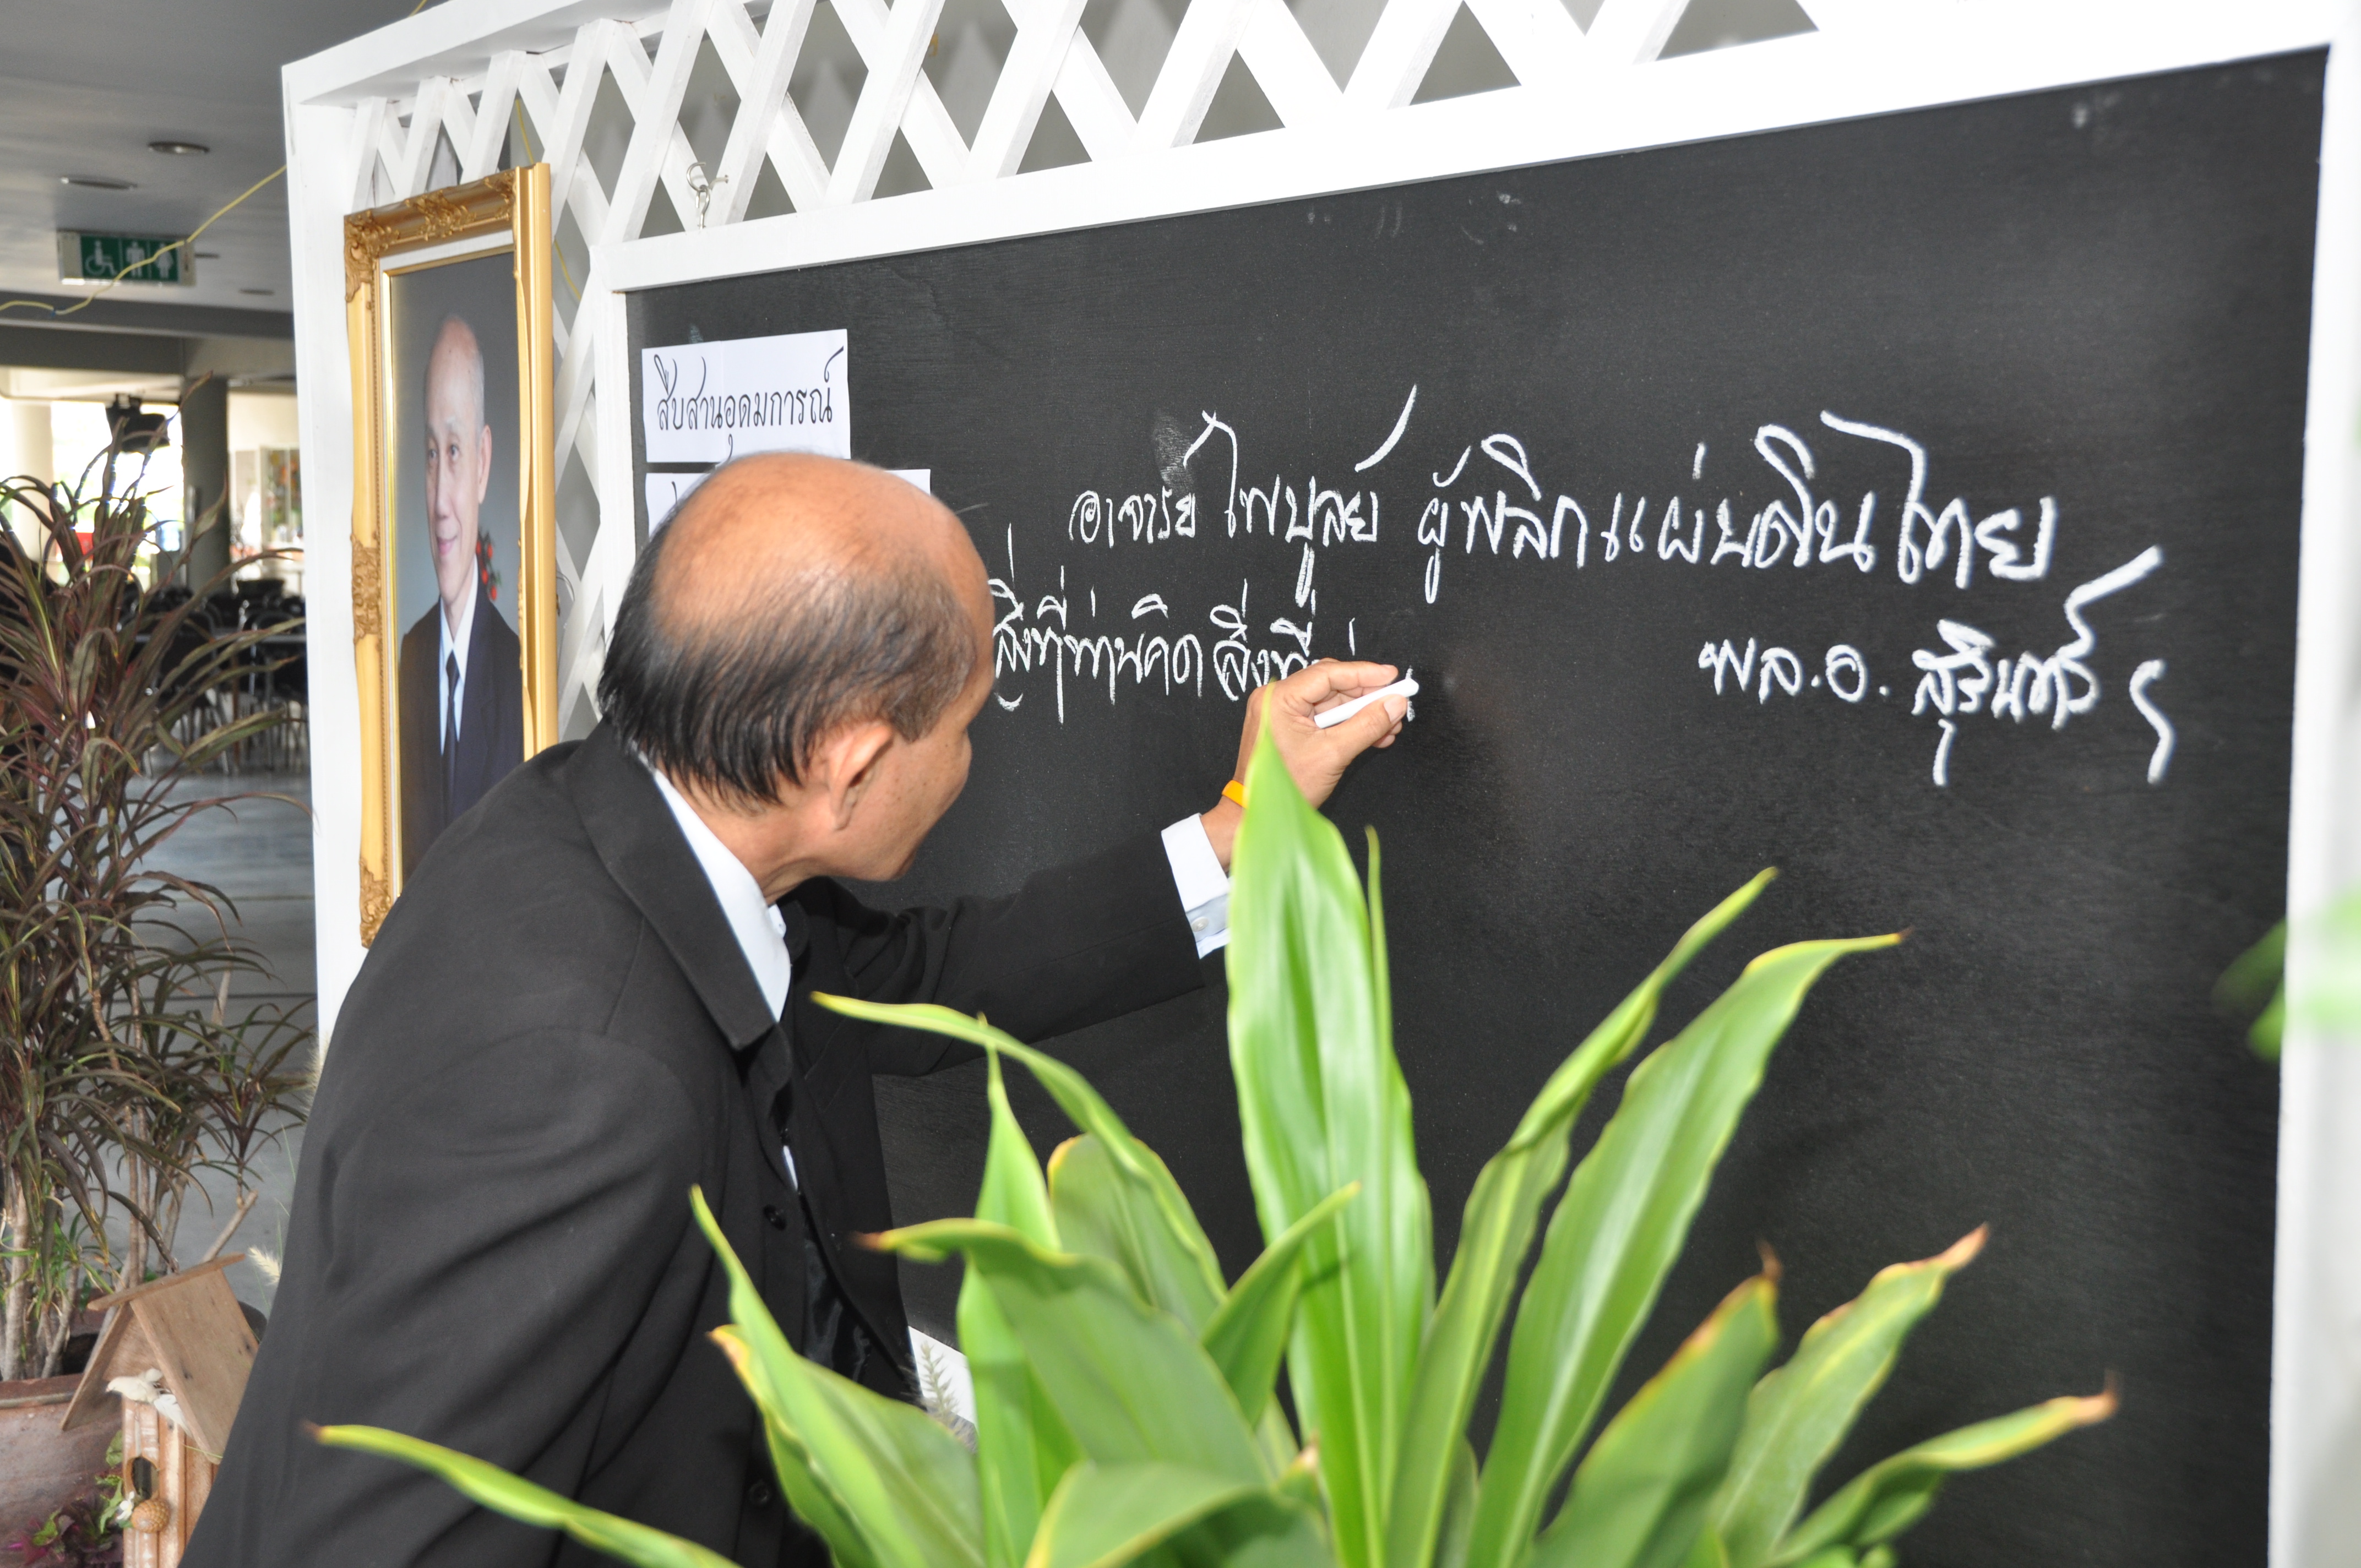 สืบสานอุดมการณ์
อาจารย์ ไพบูลย์ ผู้พลิกแผ่นดินไทย
พล.อ. สุรินทร์
สิ่งที่ท่านคิด สิ่งที่